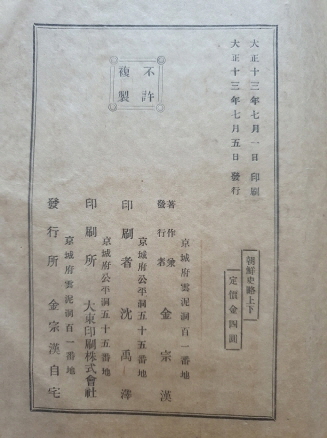 大正十三年七月一日 印刷
大正十三年七月五日 發行
不許
複製
朝鮮史略上下
定價金四圓
京城府雲泥洞百一番地
著作兼
發行者 金宗漢
京城府公平洞五十五番地
印刷者 沈禹澤
京城府公平洞五十五番地
印刷所 大東印刷株式會社
京城府雲泥洞百一番地
發行所 金宗漢自宅